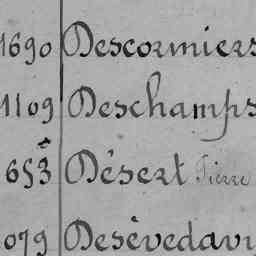 1690 Descormiers
1109 Deschamps
653 Désert Pierre
079 Desèvedavy